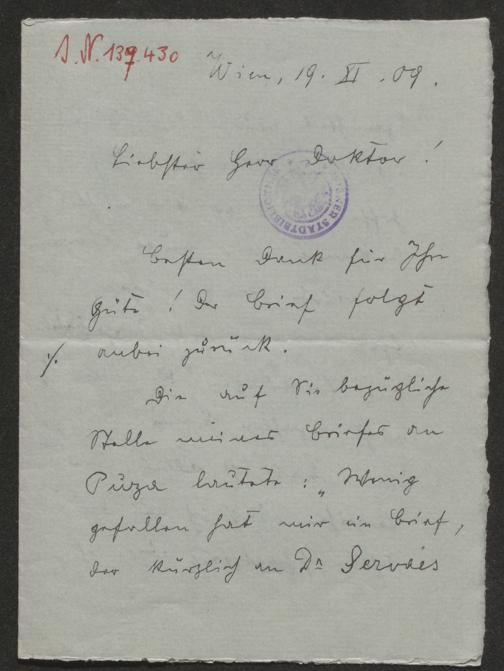 J. N. 139.430
Wien, 19. XI. 09.
Liebster Herr Doktor!
Besten Dank für Ihre
Güte! Der Brief folgt
./. anbei zurück.
Die auf Sie bezügliche
Stelle meines Briefes an
lautete: „Wenig
gefallen hat mir ein Brief,
der kürzlich an Dr Servaes